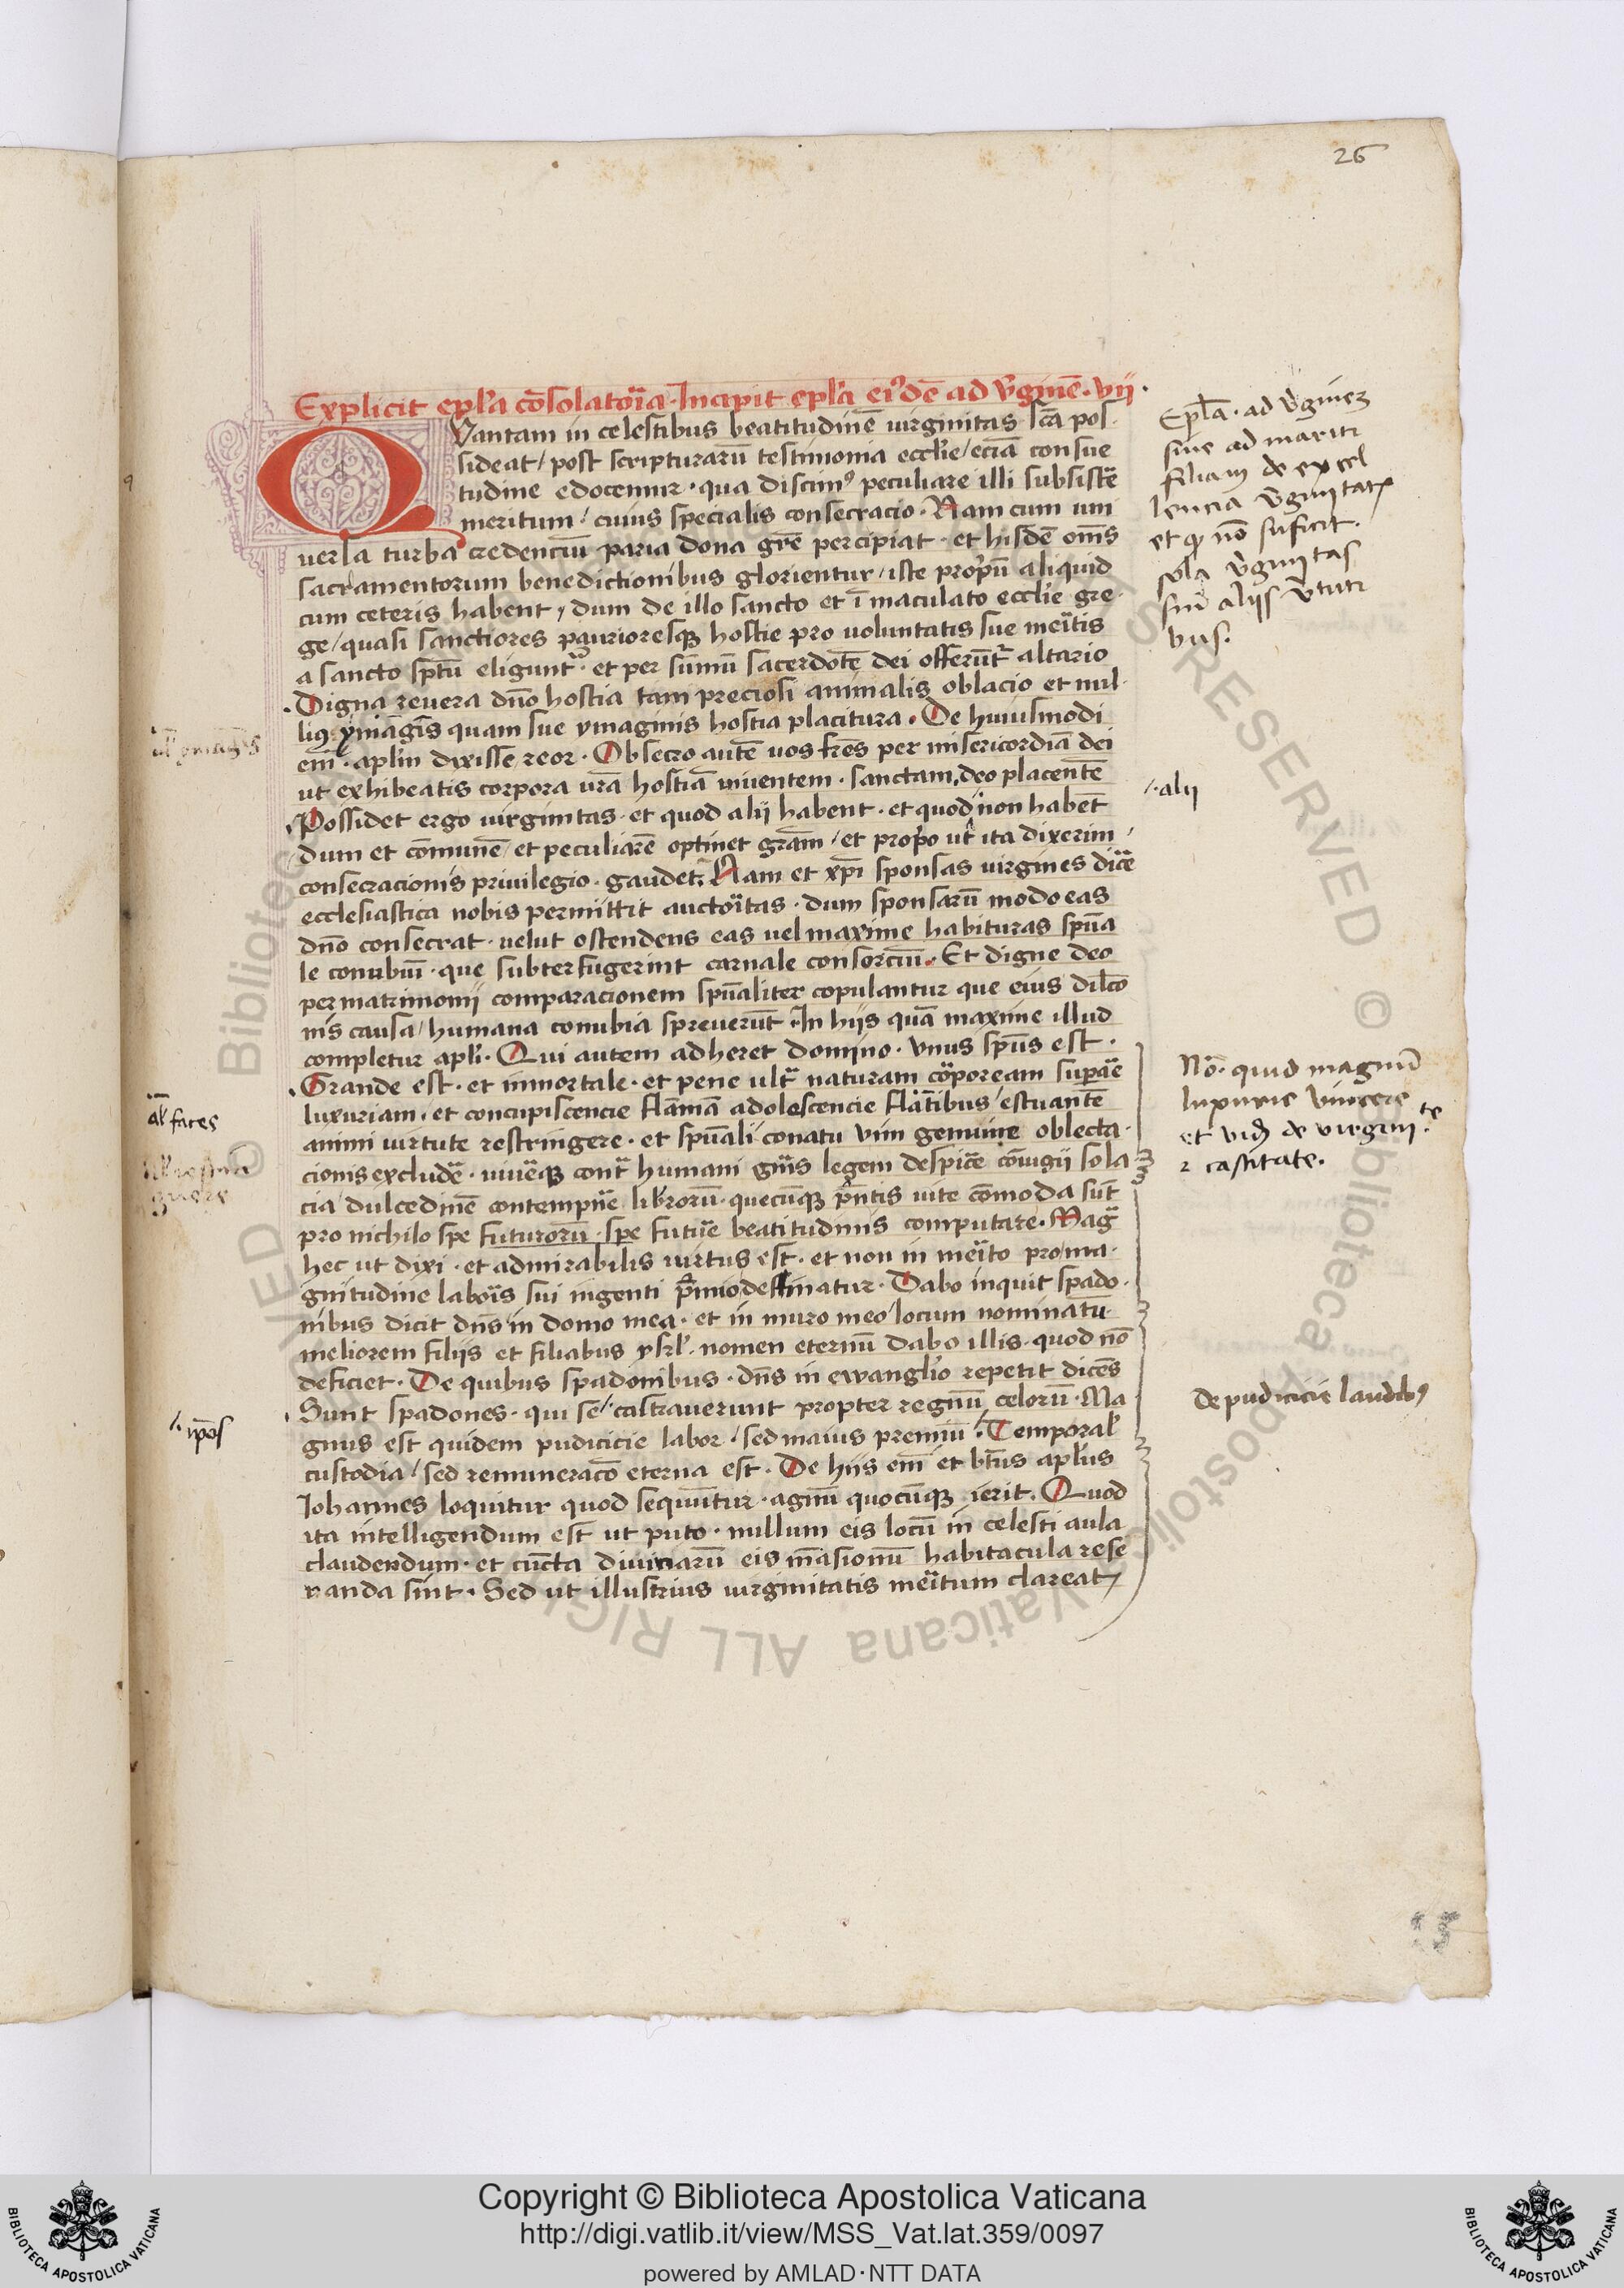 26
Explicit epl'a cōsolatoīa. Incipit epl'a ei9dē ad v̓ginē. vii.
Quantam in celestibus beatitudinē virginitas sc̄a pos-
sideat / post scripturarū testimonia eccl'ie / eciā consue
tudine edocemur. qua discim9 peculiare illi subsistē
meritum / cuius specialis consecracio. Nam cum uni
uersa turba credenciū paria dona grē percipiat. et hisdē om̄s
sacramentorum benedictionibus glorientur / iste prop̓ū aliquid
cum ceteris habent / dum de illo sancto et īmaculato eccl'ie gre-
ge / quasi sanctiores purioresqꝫ hostie pro uoluntatis sue meītis
a sancto sp̄tu eliguntᷣ. et per sūmū sacerdotē dei offerūtᷣ altario
Digna reuera dn̄o hostia tam preciosi animalis oblacio et nul-
liꝯ ymaḡis quam sue ymaginis hostia placitura. De huiusmodi
eni. apl'm dixisse reor. Obsecro autē uos fr̄es per misericordiā dei
ut exhibeatis corpora ur̄a hostiā uiuentem. sanctam, deo placentē
Possidet ergo uirginitas. et quod alii habent. et quod non habēt
dum et cōmunē / et peculiarē optinet grām / et prop̓o ut ita dixerim /
consecracionis priuilegio. gaudet. Nam et xp̄i sponsas uirgines dic̄e
ecclesiastica nobis permittit auctoītas. dum sponsarū modo eas
dn̄o consecrat. uelut ostendens eas uel maxime habituras sp̄ua
le conubiū. que subterfugerint carnale consorciū. Et digne deo
per matrimonii comparacionem sp̄ualiter copulantur que eius dil'cō
nis causa / humana conubia spreuerūt. In hiis quā maxime illud
completur apl'i. Qui autem adheret domino. vnus sp̄us est.
Grande est. et inmortale. et pene ultᷓ naturam cōpoream sup̄ae
luxuriam. et concupiscencie flāmā adolescencie flātibus / estuantē
animi uirtute restringere. et sp̄uali conatu vim gemine oblecta-
cionis excludē. uiuēqꝫ contᷓ humani gn̄is legem despic̄e cōiugii sola-
cia / dulcedinē contempn̄e librorū. quecūqꝫ p̄ntis uite cōmoda sūt
pro nichilo spe futurorū. spe futūe beatitudinis computare. Magᷓ
hec ut dixi. et admirabilis uirtus est. et non in meīto pro ma-
gnitudine laboīs sui ingenti p̄mio destinatur. Dabo inquit spado-
nibus dicit dn̄s in domo mea. et in muro meo / locum nominatū
meliorem filiis et filiabus ysrl'. nomen eternū dabo illis. quod nō
deficiet. De quibus spadonibus. dn̄s in ewangl'io repetit dicēs
Sunt spadones. qui se castrauerunt propter regnū celorū. Ma
gnus est quidem pudicicie labor. sed maius premiū. Temporal'
custodia / sed remuneracō eterna est. De hiis eni et bt̄us apl'us
Iohannes loquitur quod sequūtur. agnū quocūqꝫ ierit. Quod
ita intelligendum est ut puto. nullum eis locū in celesti aula
claudendum. et cūcta diuinarū eis māsionū habitacula rese
randa sint. Sed ut illustrius uirginitatis meītum clareat /
Epl'a. ad v̓ginēꝫ
siue ad māriti
filiam de excel
lencia v̓ginitatꝭ
et qꝫ nō suficit
sola v̓ginitas
sin̄ aliis v̓tuti
bus.
alii
al' faces
Nō. quid magnū
luxurie vincere
et vid' de virgini
te
⁊ castitate.
ipōs
De pudicicie laudibꝯ
Copyright © Biblioteca Apostolica Vaticana
http://digi.vatlib.it/view/MSS_Vat.lat.359/0097
powered by AMLAD·NTT DATA
BIBLIOTECA APOSTOLICA VATICANA
BIBLIOTECA APOSTOLICA VATICANA